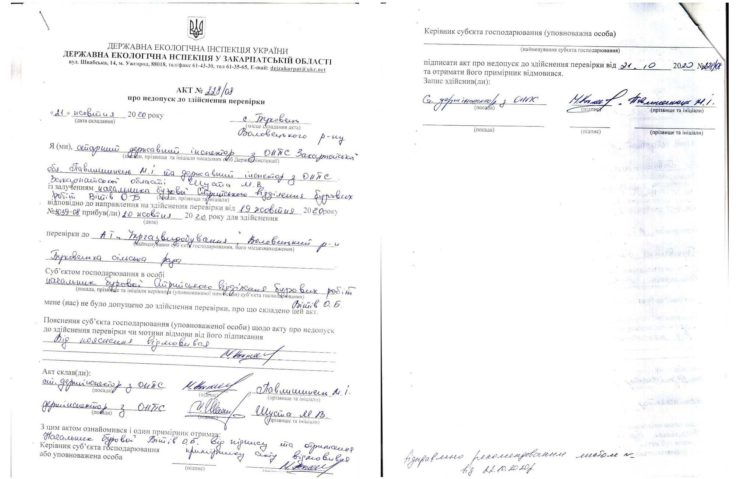 ДЕРЖАВНА ЕКОЛОГІЧНА ІНСПЕКЦІЯ УКРАЇНИ
ДЕРЖАВНА ЕКОЛОГІЧНА ІНСПЕКЦІЯ У ЗАКАРПАТСЬКІЙ ОБЛАСТІ
вул. Швабська, 14, м. Ужгород, 88018, тел/факс 61-43-30, тел 61-35-65, E-mail: deizakarpat@ukr.net
АКТ № 229/08
про недопуск до здійснення перевірки
«21» жовтня 2020 року
(дата складання)
с. Буковець
(місце складання акта)
Воловецького р-ну
Я (ми), старший державний інспектор з ОНПС Закарпатської
обл. Павлишинець М.І. та державний інспектор з ОНПС
Закарпатської області Шуста М.В.
із залученням начальника бурової Стрийського відділення бурових
робіт Вітів О.Б.
відповідно до направлення на здійснення перевірки від 19 жовтня 2020 року
№ прибув(ли) 20 жовтня 2020 року для здійснення
(дата)
перевірки до АТ "Укргазвидобування", Воловецький р-н
Буковецька сільська рада
Суб’єктом господарювання в особі
начальник бурової Стрийського відділення бурових робіт
Вітів О.Б.
мене (нас) не було допущено до здійснення перевірки, про що складено цей акт.
Пояснення суб’єкта господарювання (уповноваженої особи) щодо акту про недопуск
до здійснення перевірки чи мотиви відмови від його підписання
Від пояснення відмовився
Акт склав(ли):
ст. держінспектор з ОНПС Павлишинець М.І.
(посада) (підпис) (прізвище та ініціали)
держінспектор з ОНПС Шуста М.В.
(посада) (підпис) (прізвище та ініціали)
З цим актом ознайомився і один примірник отримав:
Начальник бурової Вітів О.Б. від підпису та отримання
Керівник суб’єкта господарювання примірнику акту відмовився
або уповноважена особа
(підпис)
Керівник суб’єкта господарювання (уповноважена особа)
(найменування суб’єкта господарювання)
підписати акт про недопуск до здійснення перевірки від 21.10 2020 № 229/08
та отримати його примірник відмовився.
Запис здійснив(ли):
Ст. держінспектор з ОНПС Павлишинець М.І.
(посада) (підпис) (прізвище та ініціали)
(посада) (підпис) (прізвище та ініціали)
Відправлено рекомендованим листом
від